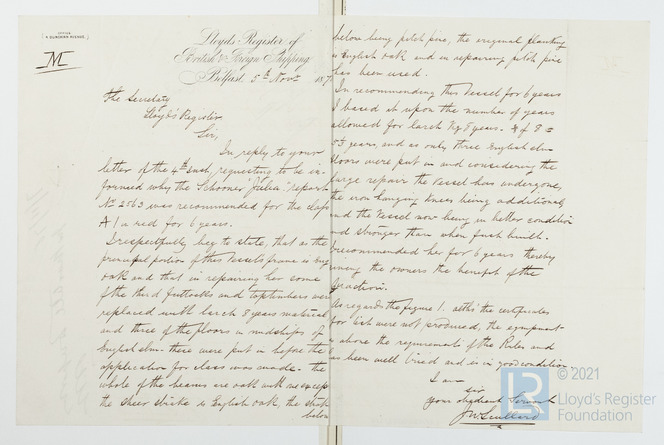 OFFICE
4 DUNCAIRN AVENUE.
M
Lloyd's Register of
British & Foreign Shipping
Belfast 5th Novr 187
The Secretary
Lloyd's Register
Sir,
In reply to your
letter of the 4th Inst, requesting to be in-
formed why the Schooner "Julia" report
No 2563 was recommended for the class
A1 in red for 6 years.
I respectfully beg to state, that as the
principal portion of this Vessels frame is Eng
oak and that in repairing her some
of the third futtocks and toptimbers were
replaced with larch 8 years material
and three of the floors in midships of
English elm. there were put in before the
application for class was made. the
whole of the beams are oak with
the sheer strake is English oak, the strake
below
before being pitch pine, the original planking
is English oak and in repairing pitch pine
has been used.
In recommending this Vessel for 6 years
I based it upon the number of years
allowed for larch 8 years. of 8 =
years, and as only three English elm
floors were put in and considering the
large repair the Vessel has undergone
the iron hanging knees being additional
and the Vessel now being in better condition
and stronger than when first built.
recommended her for 6 years thereby
giving the owners the benefit of the
fraction.
As regards the figure 1. altho the certificates
for were not produced, the equipment
is above the requirements of the Rules and
has been well tried and is in good condition
I am
Sir
your obedient Servant
© 2021
LR
Lloyd's Register
Foundation